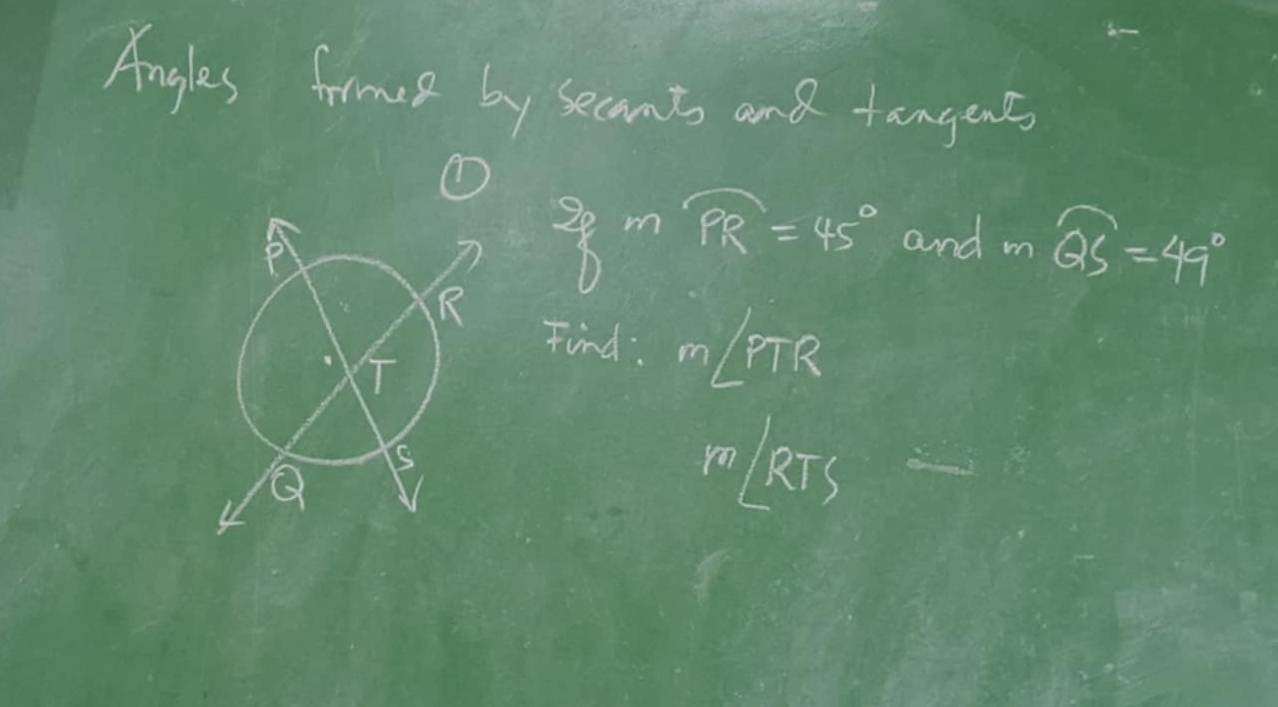 Angles formed by secants and tangents
①
If m PR = 45° and m QS = 49°
P
R
Find: m∠PTR
T
m∠RTS
S
Q